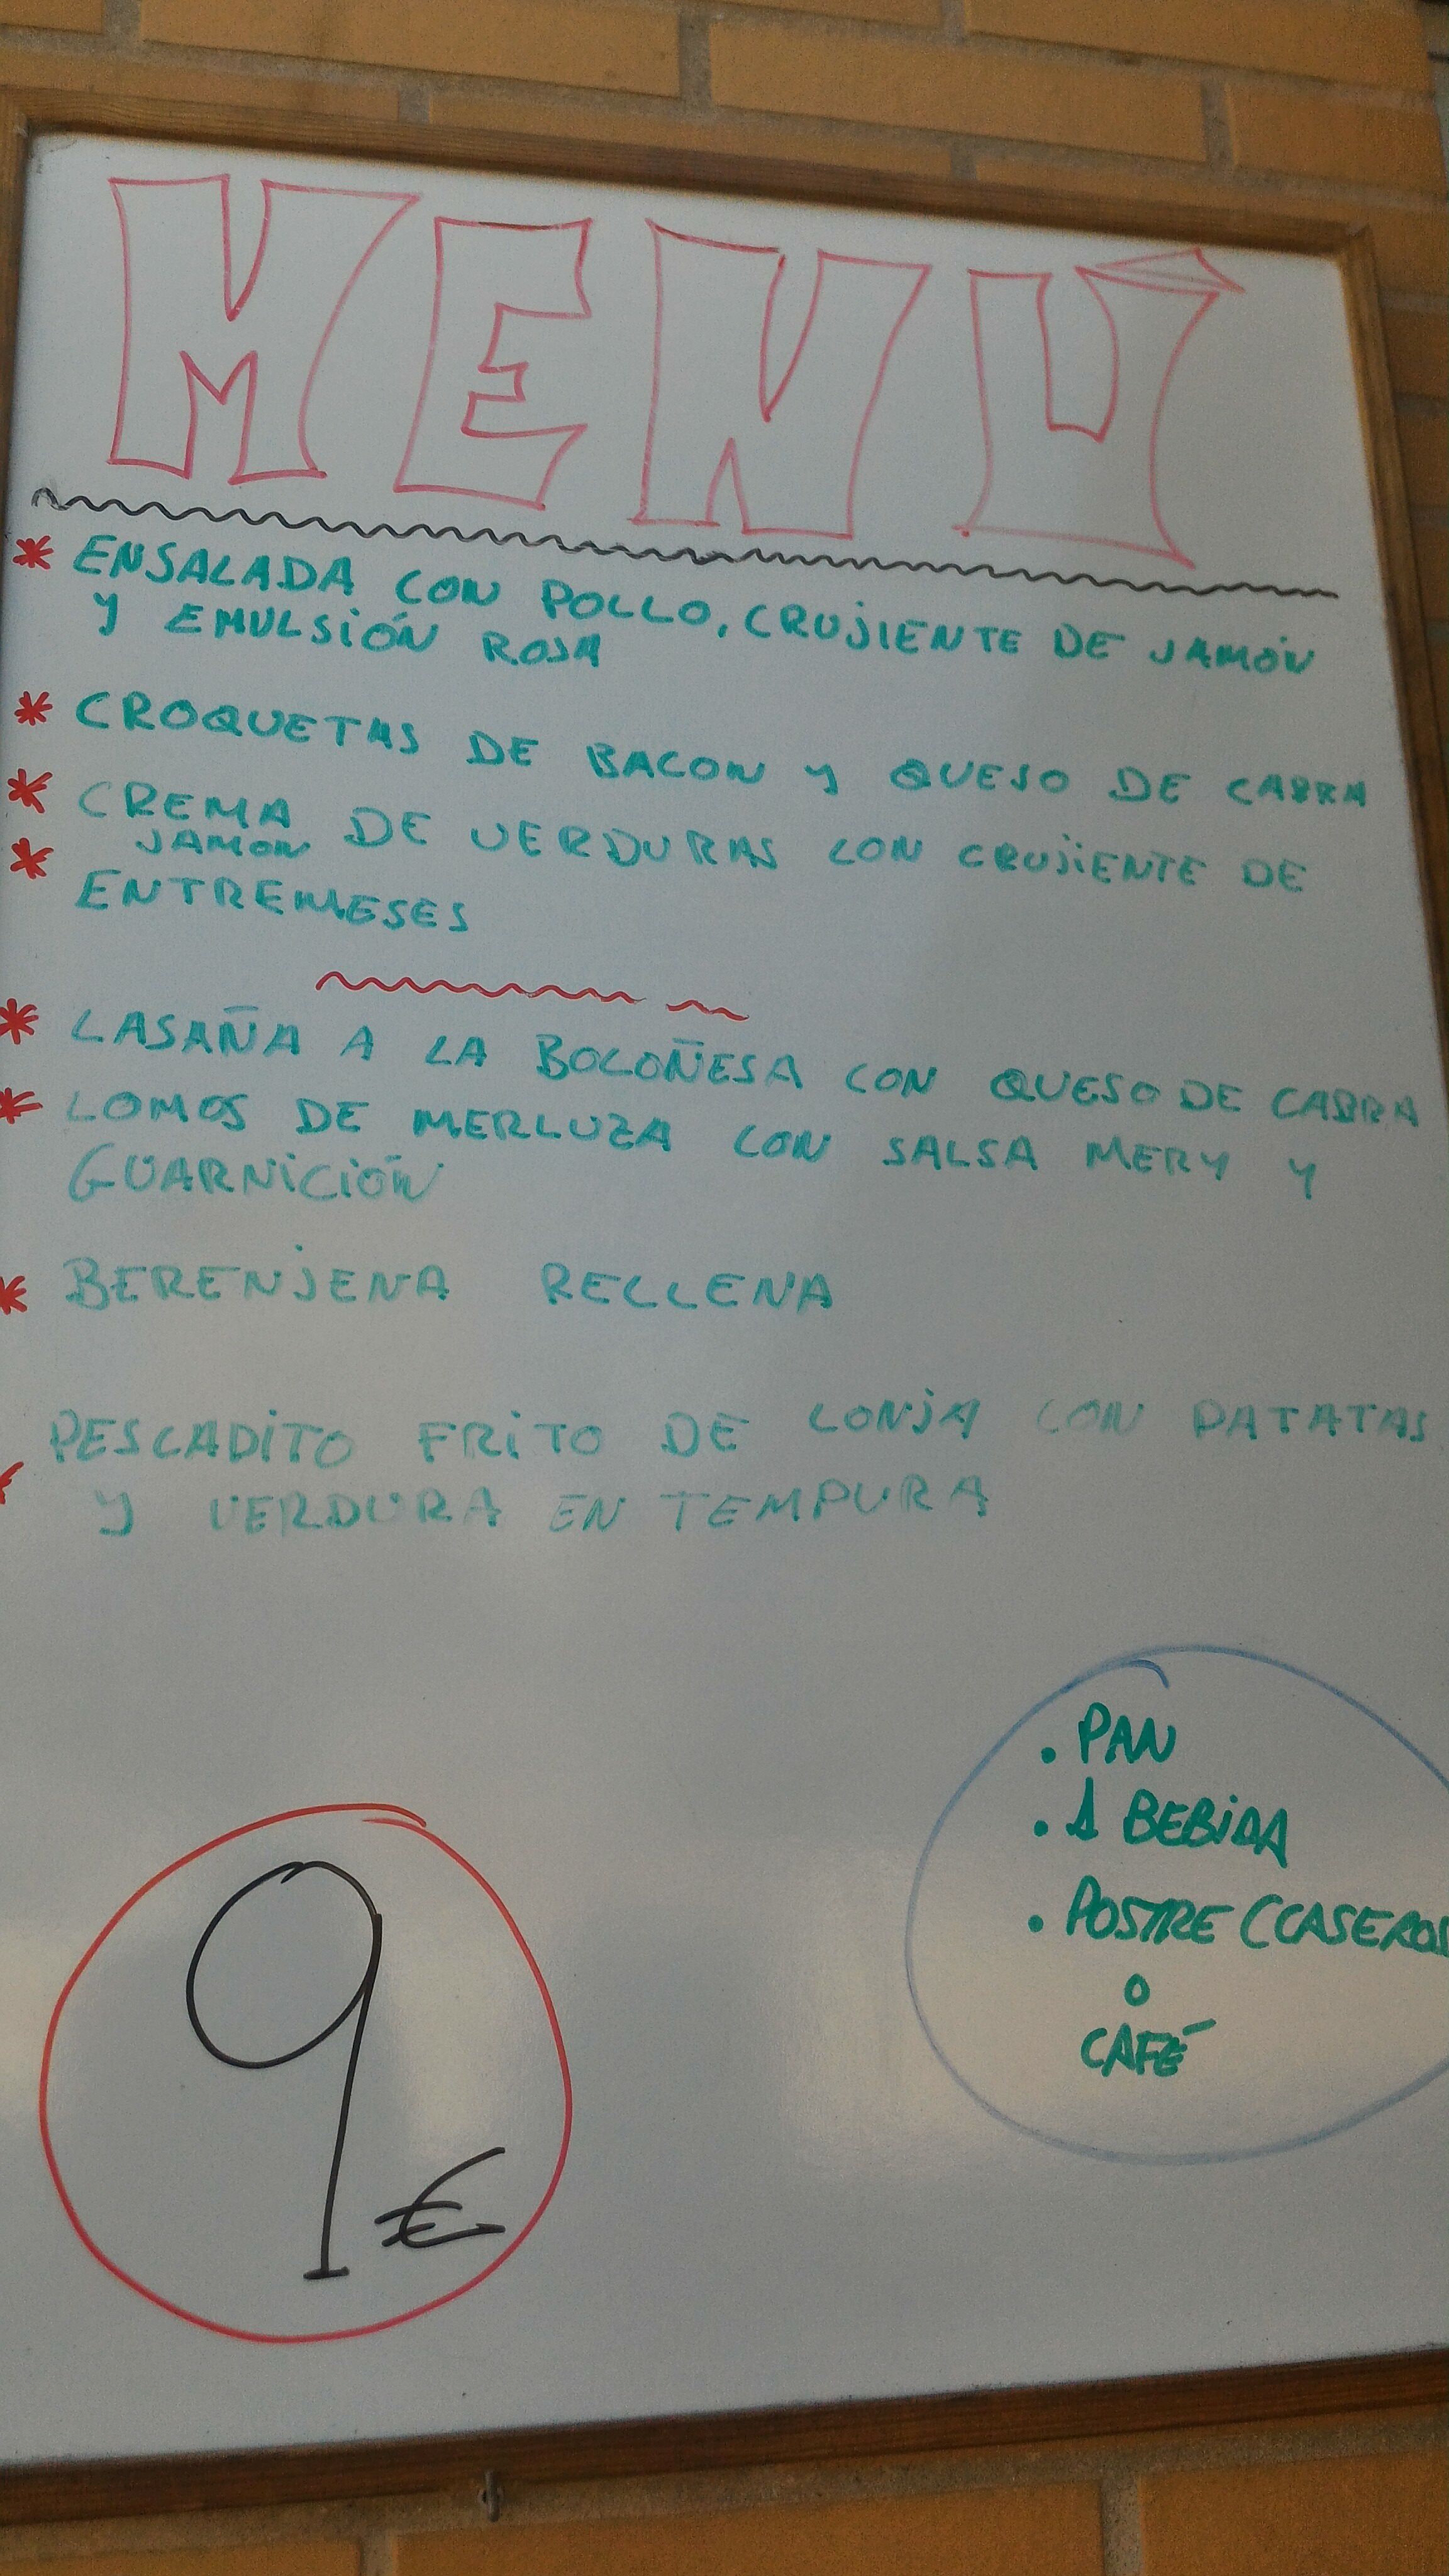 MENÚ
* ENSALADA CON POLLO, CRUJIENTE DE JAMÓN
Y EMULSIÓN ROSA
* CROQUETAS DE BACON Y QUESO DE CABRA
* CREMA DE VERDURAS CON CRUJIENTE DE
JAMON
* ENTREMESES
* LASAÑA A LA BOLOÑESA CON QUESO DE CABRA
* LOMOS DE MERLUZA CON SALSA MERY Y
GUARNICIÓN
* BERENJENA RELLENA
PESCADITO FRITO DE LONJA CON PATATAS
* Y VERDURA EN TEMPURA
. PAN
. 1 BEBIDA
. POSTRE (CASEROS
O
CAFÉ
9€